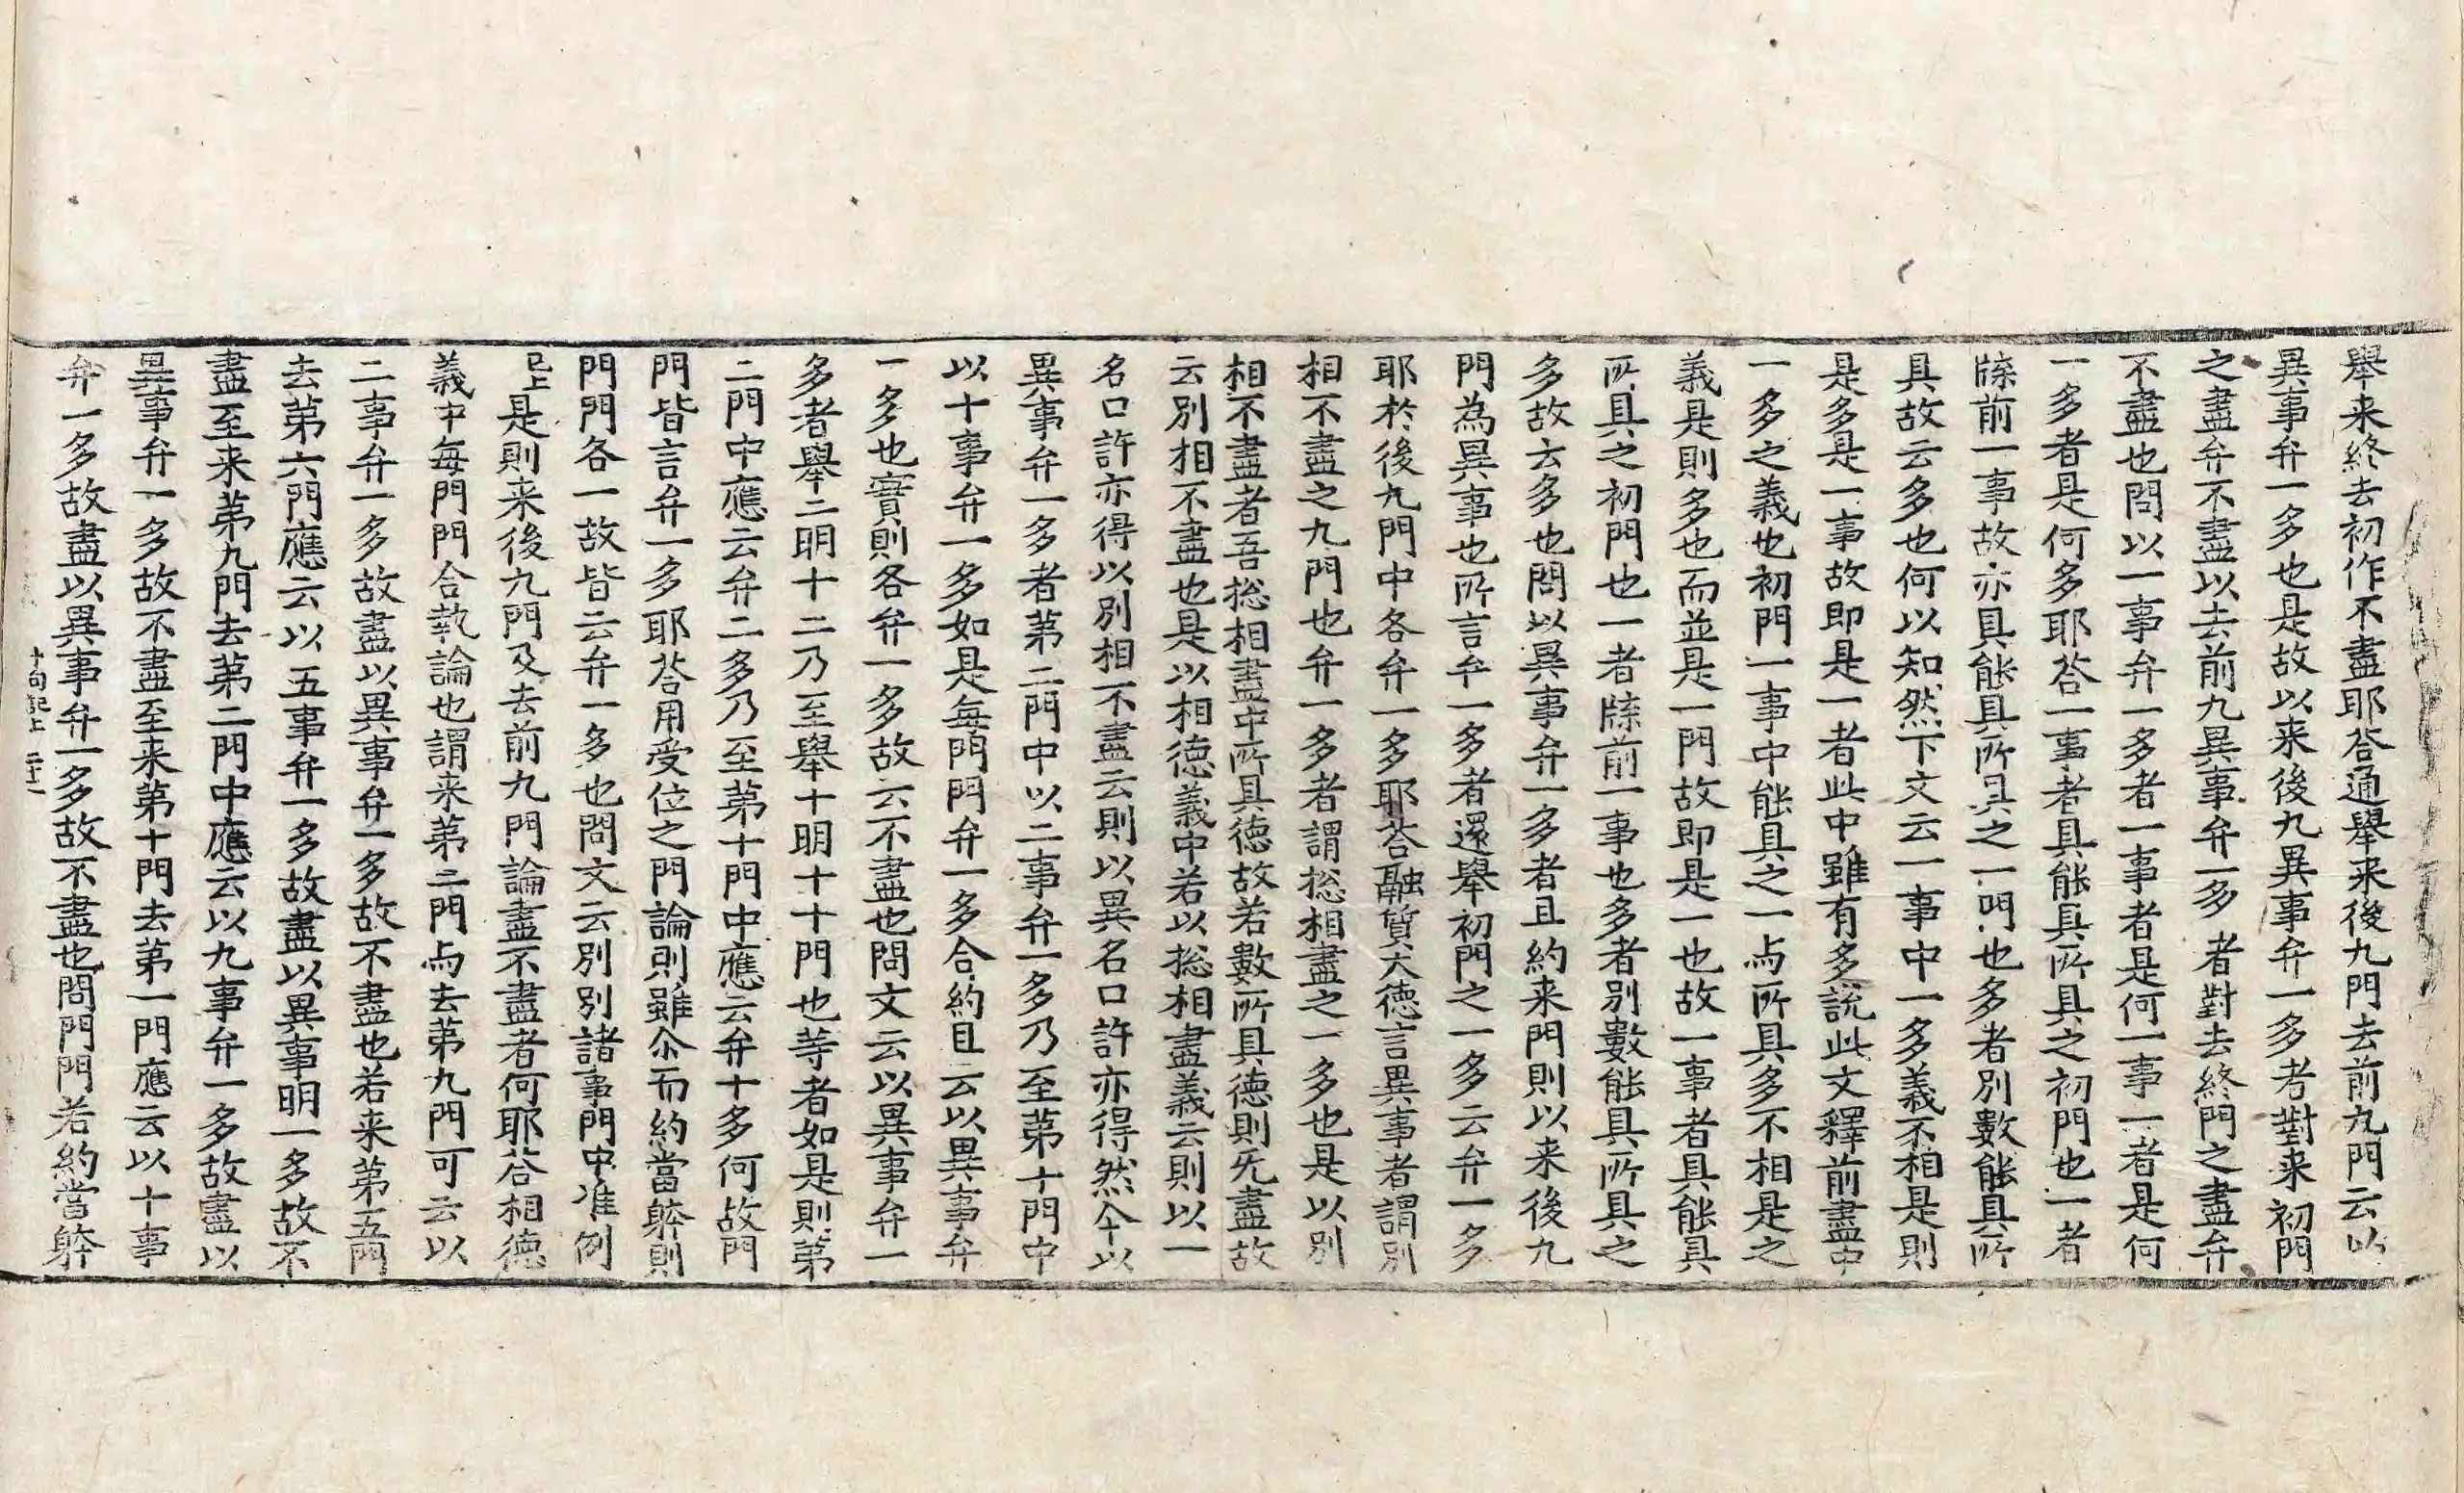 舉来終去初作不盡耶荅通舉来後九門去前九門云以
異事弁一多也是故以来後九異事弁一多者對来初門
之盡弁不盡以去前九異事弁一多者對去終門之盡弁
不盡也問以一事弁一多者一事者是何一事一者是何
一多者是何多耶荅一事者具能具所具之初門也一者
牒前一事故亦具能具所具之一門也多者別數能具所
具故云多也何以知然下文云一事中一多義不相是則
是多是一事故即是一者此中雖有多說此文釋前盡中
一多之義也初門一事中能具之一与所具多不相是之
義是則多也而並是一門故即是一也故一事者具能具
所具之初門也一者牒前一事也多者別數能具所具之
多故云多也問以異事弁一多者且約来門則以来後九
門為異事也所言弁一多者還舉初門之一多云弁一多
耶於後九門中各弁一多耶荅融質大德言異事者謂別
相不盡之九門也弁一多者謂揔相盡之一多也是以別
相不盡者吾揔相盡中所具德故若數所具德則无盡故
云別相不盡也是以相德義中若以揔相盡義云則以一
名口許亦得以別相不盡云則以異名口許亦得然今以
異事弁一多者第二門中以二事弁一多乃至第十門中
以十事弁一多如是每門門弁一多合約且云以異事弁
一多也實則各弁一多故云不盡也問文云以異事弁一
多者舉二明十二乃至舉十明十十門也等者如是則第
二門中應云弁二多乃至第十門中應云弁十多何故門
門皆言弁一多耶荅用受位之門論則雖尒而約當躰則
門門各一故皆云弁一多也問文云別別諸事門中准例
已上是則来後九門及去前九門論盡不盡者何耶荅相德
義中每門門合執論也謂来第二門与去第九門可云以
二事弁一多故盡以異事弁一多故不盡也若来第五門
去第六門應云以五事弁一多故盡以異事明一多故不
盡至来第九門去第二門中應云以九事弁一多故盡以
異事弁一多故不盡至来第十門去第一門應云以十事
弁一多故盡以異事弁一多故不盡也問門門若約當躰
十句記上